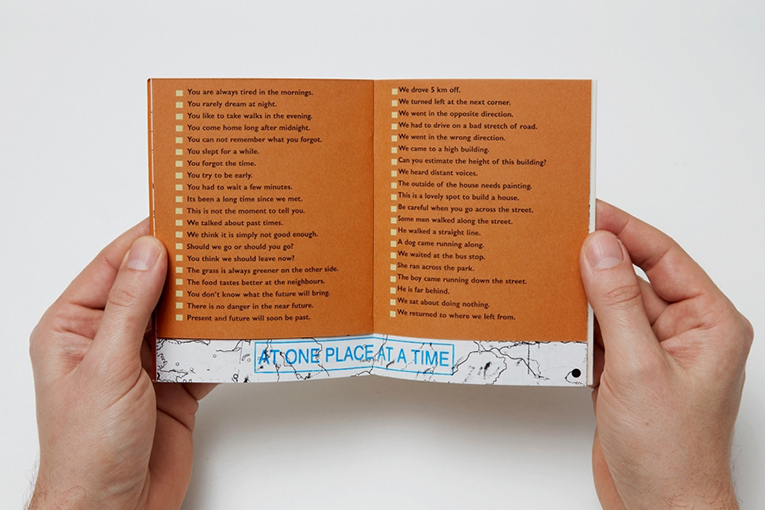 You are always tired in the mornings.
You rarely dream at night.
You like to take walks in the evening.
You come home long after midnight.
You can not remember what you forgot.
You slept for a while.
You forgot the time.
You try to be early.
You had to wait a few minutes.
Its been a long time since we met.
This is not the moment to tell you.
We talked about past times.
We think it is simply not good enough.
Should we go or should you go?
You think we should leave now?
The grass is always greener on the other side.
The food tastes better at the neighbours.
You don't know what the future will bring.
There is no danger in the near future.
Present and future will soon be past.
We drove 5 km off.
We turned left at the next corner.
We went in the opposite direction.
We had to drive on a bad stretch of road.
We went in the wrong direction.
We came to a high building.
Can you estimate the height of this building?
We heard distant voices.
The outside of the house needs painting.
This is a lovely spot to build a house.
Be careful when you go across the street.
Some men walked along the street.
He walked a straight line.
A dog came running along.
We waited at the bus stop.
She ran across the park.
The boy came running down the street.
He is far behind.
We sat about doing nothing.
We returned to where we left from.
AT ONE PLACE AT A TIME